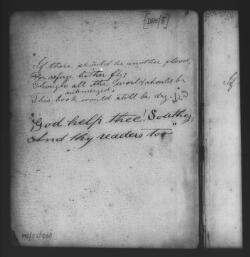 If there should be another flood,
For refuge hither fly;
Though all the world should be
submerged,
This book would still be dry.
"God help thee! Southey,
And thy readers too"